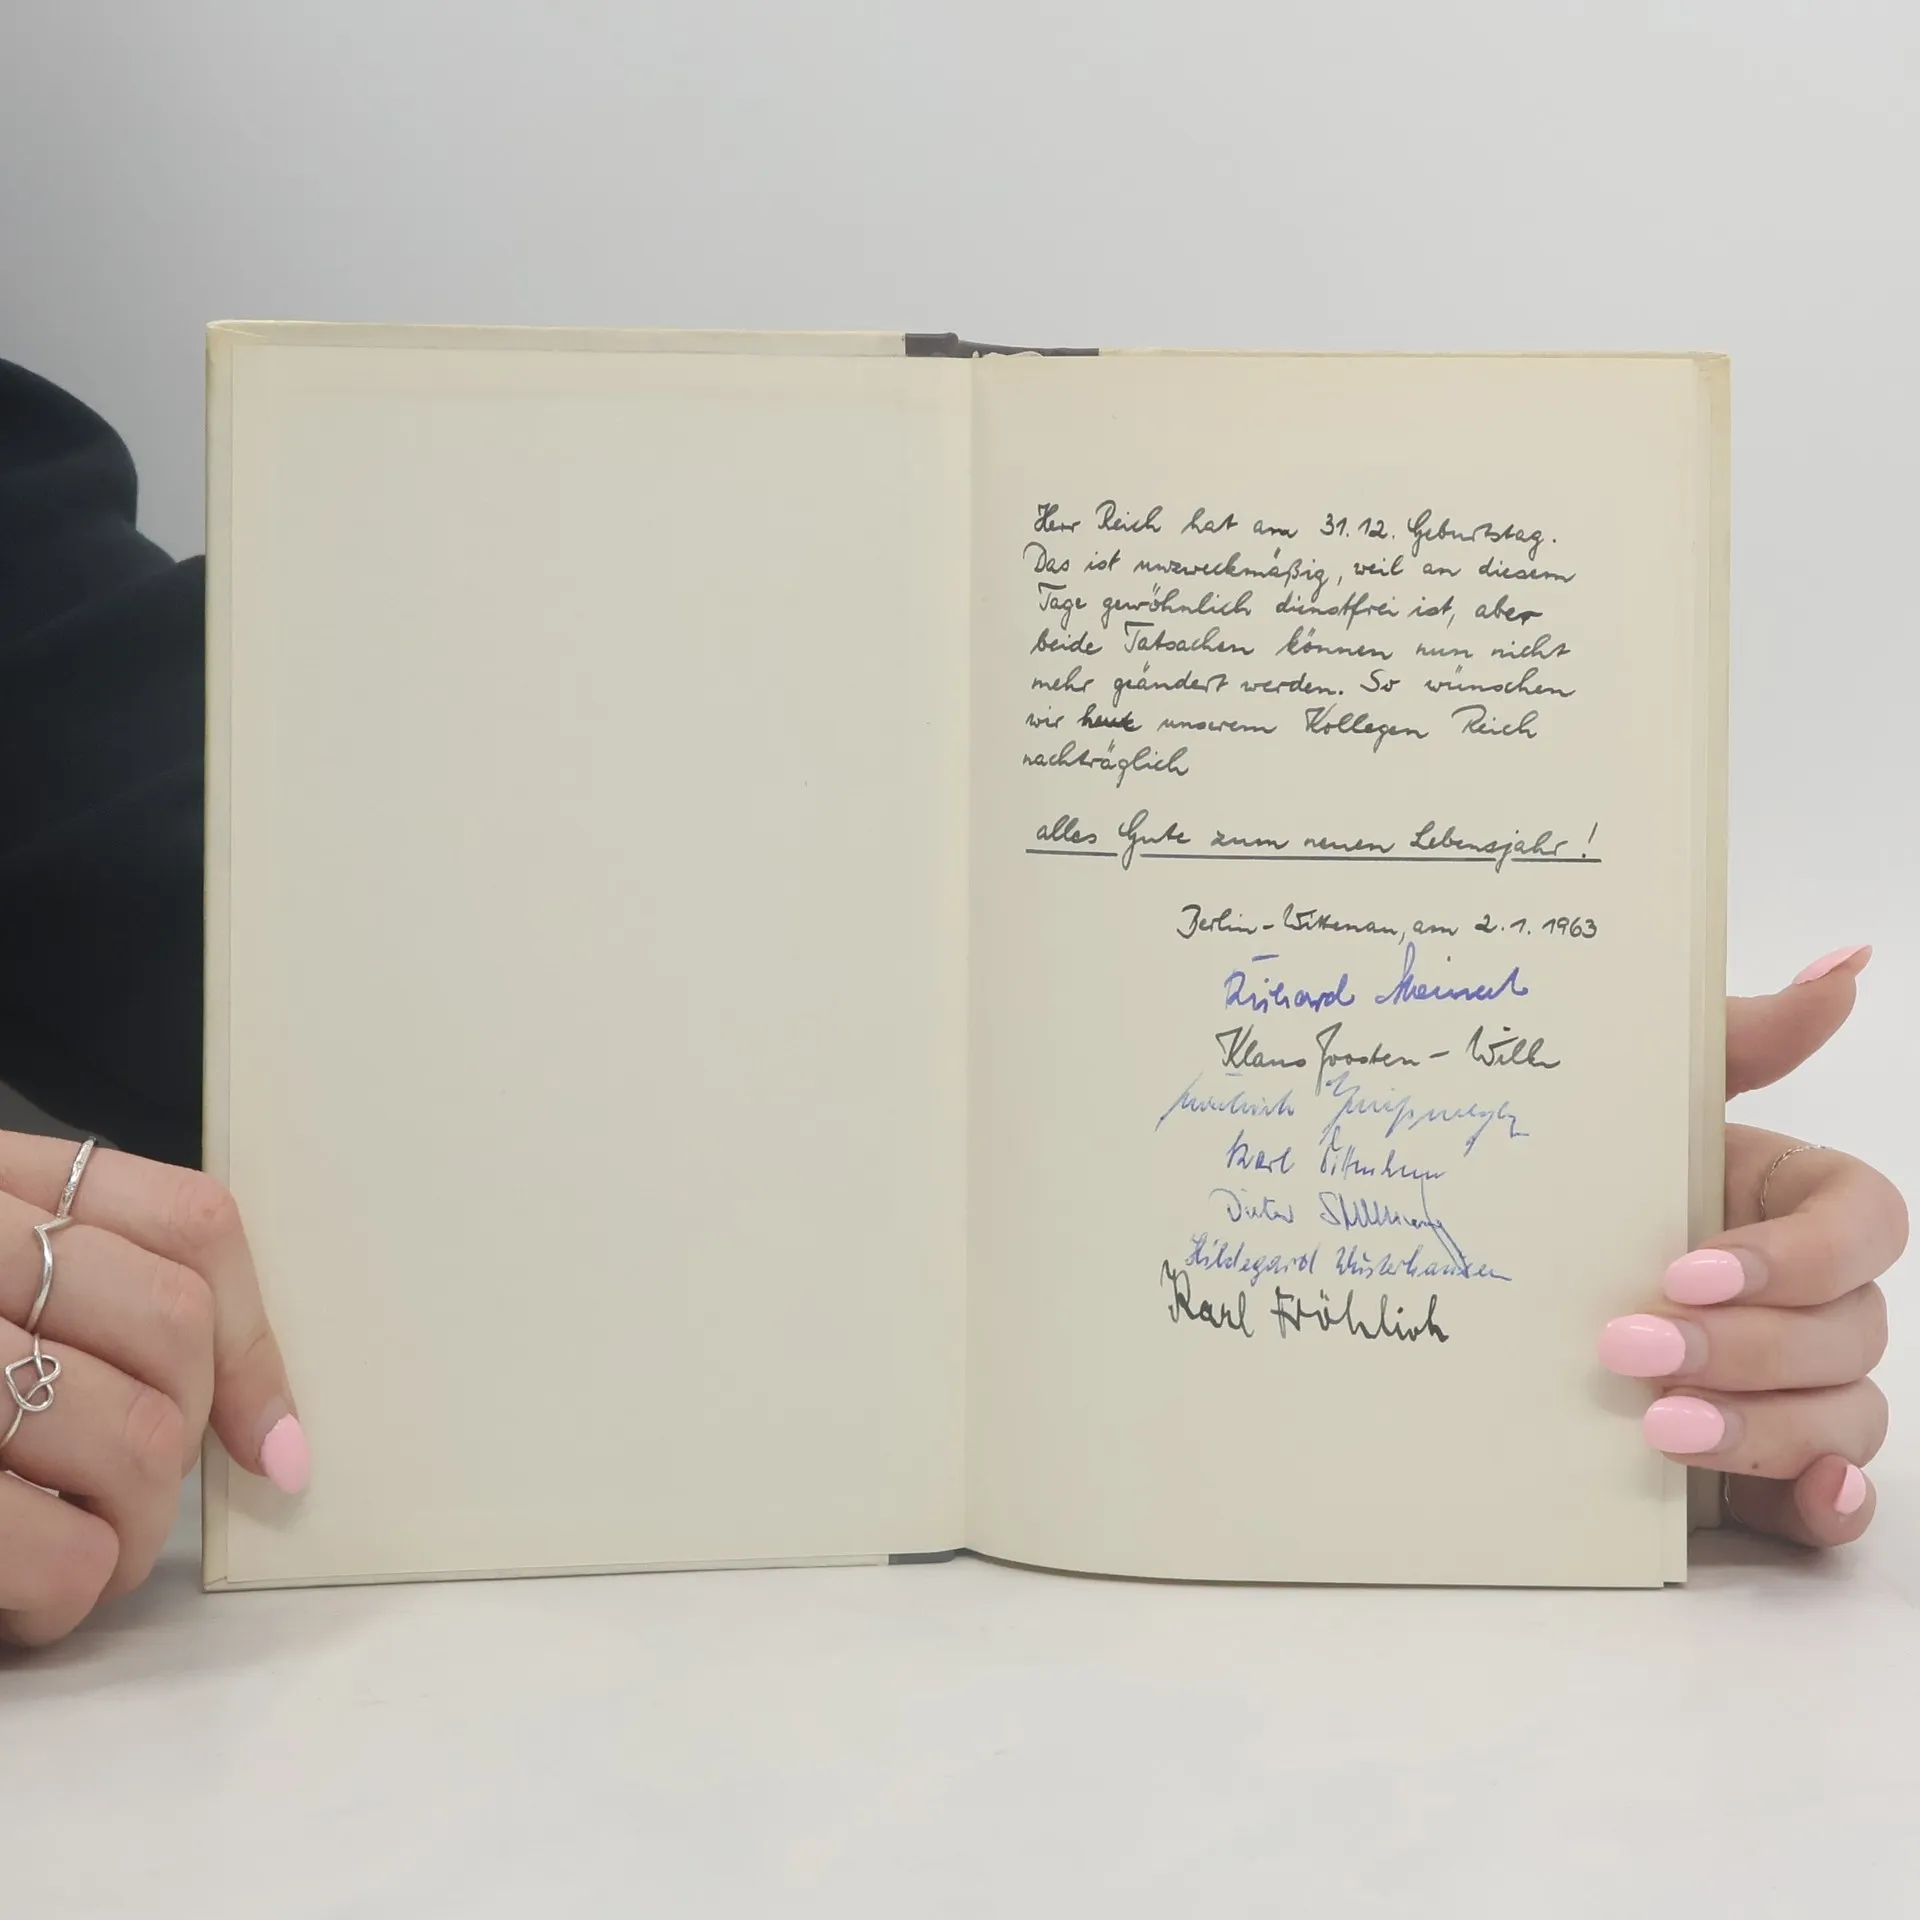 Herr Reich hat am 31.12. Geburtstag.
Das ist unzweckmäßig, weil an diesem
Tage gewöhnlich dienstfrei ist, aber
beide Tatsachen können nun nicht
mehr geändert werden. So wünschen
wir heute unserem Kollegen Reich
nachträglich
alles Gute zum neuen Lebensjahr!
Berlin-Wittenau, am 2.1.1963
Richard Meinert
Klaus Joosten - Wilke
Karl
Dieter
Hildegard Wüsterhausen
Karl Fröhlich